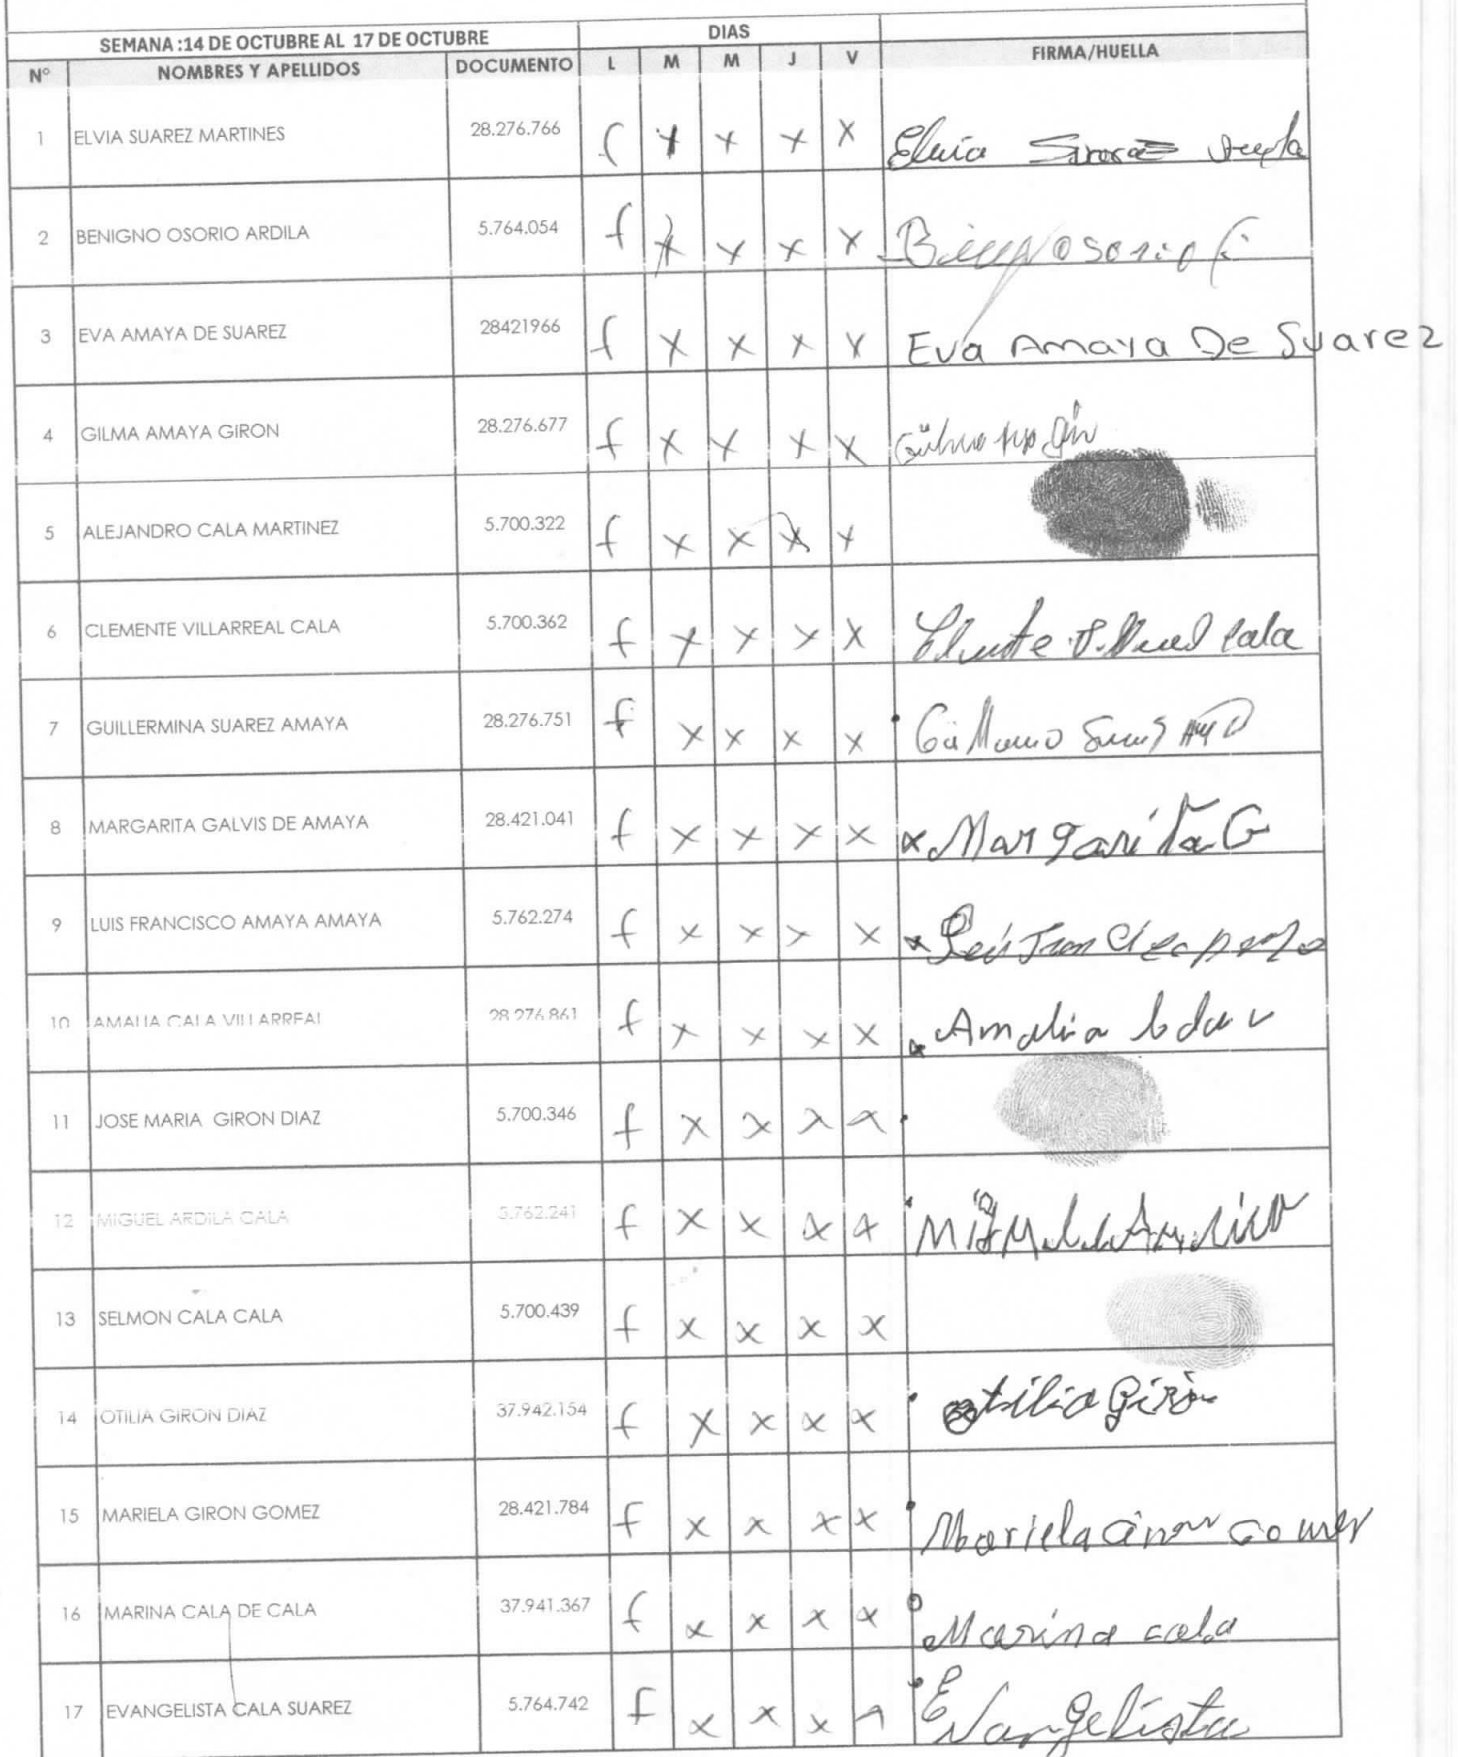 SEMANA :14 DE OCTUBRE AL 17 DE OCTUBRE DIAS FIRMA/HUELLA
N° NOMBRES Y APELLIDOS DOCUMENTO L M M J V
1 ELVIA SUAREZ MARTINES 28.276.766 f x x x x Elvia Suarez
2 BENIGNO OSORIO ARDILA 5.764.054 f x x x x osorio
3 EVA AMAYA DE SUAREZ 28421966 f x x x x Eva Amaya De Suarez
4 GILMA AMAYA GIRON 28.276.677 f x x x x
5 ALEJANDRO CALA MARTINEZ 5.700.322 f x x x x
6 CLEMENTE VILLARREAL CALA 5.700.362 f x x x x Cala
7 GUILLERMINA SUAREZ AMAYA 28.276.751 f x x x x
8 MARGARITA GALVIS DE AMAYA 28.421.041 f x x x x x Margarita G
9 LUIS FRANCISCO AMAYA AMAYA 5.762.274 f x x x x x
10 AMALIA CALA VILLARREAL 28.276.861 f x x x x x Amalia
11 JOSE MARIA GIRON DIAZ 5.700.346 f x x x x
12 MIGUEL ARDILA CALA 5.762.241 f x x x x
13 SELMON CALA CALA 5.700.439 f x x x x
14 OTILIA GIRON DIAZ 37.942.154 f x x x x otilia Girón
15 MARIELA GIRON GOMEZ 28.421.784 f x x x x Mariela
16 MARINA CALA DE CALA 37.941.367 f x x x x Marina cala
17 EVANGELISTA CALA SUAREZ 5.764.742 f x x x x Evangelista